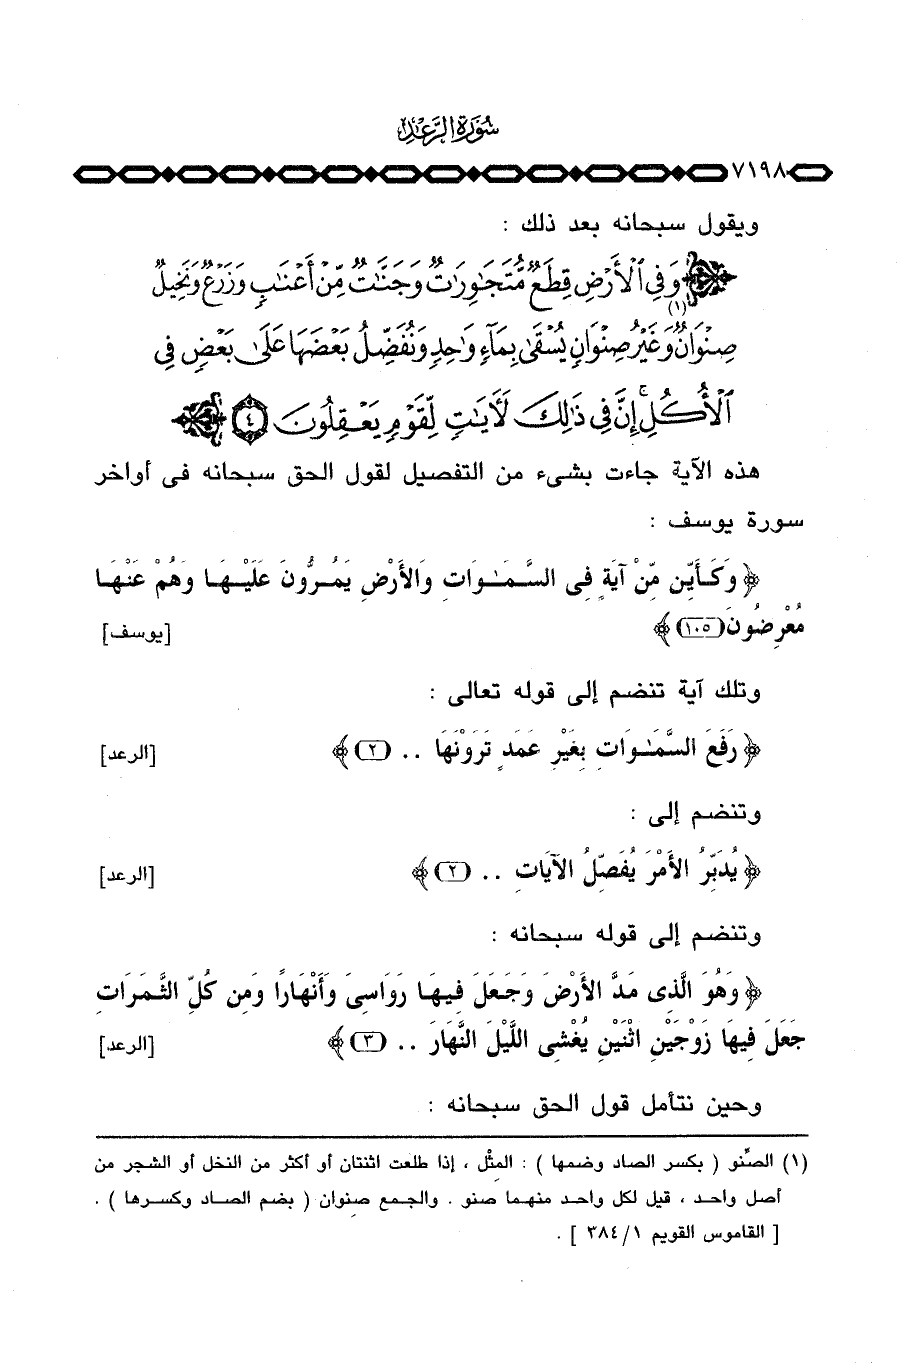 سورة الرعد
٧١٩٨
ويقول سبحانه بعد ذلك :
وَفِي ٱلْأَرْضِ قِطَعٌ مُّتَجَـٰوِرَٰتٌ وَجَنَّـٰتٌ مِّنْ أَعْنَـٰبٍ وَزَرْعٌ وَنَخِيلٌ
صِنْوَانٌ (١) وَغَيْرُ صِنْوَانٍ يُسْقَىٰ بِمَآءٍ وَٰحِدٍ وَنُفَضِّلُ بَعْضَهَا عَلَىٰ بَعْضٍ فِي
ٱلْأُكُلِ ۚ إِنَّ فِي ذَٰلِكَ لَآيَـٰتٍ لِّقَوْمٍ يَعْقِلُونَ ٤
هذه الآية جاءت بشىء من التفصيل لقول الحق سبحانه فى أواخر
سورة يوسف :
﴿ وَكَأَيِّن مِّنْ آيَةٍ فِى السَّمَـٰوَاتِ وَالأَرْضِ يَمُرُّونَ عَلَيْهَا وَهُمْ عَنْهَا
مُعْرِضُونَ (١٠٥) ﴾ [يوسف]
وتلك آية تنضم إلى قوله تعالى :
﴿ رَفَعَ السَّمَـٰوَاتِ بِغَيْرِ عَمَدٍ تَرَوْنَهَا .. (٢) ﴾ [الرعد]
وتنضم إلى :
﴿ يُدَبِّرُ الأَمْرَ يُفَصِّلُ الآيَاتِ .. (٢) ﴾ [الرعد]
وتنضم إلى قوله سبحانه :
﴿ وَهُوَ الَّذِى مَدَّ الأَرْضَ وَجَعَلَ فِيهَا رَوَاسِىَ وَأَنْهَارًا وَمِن كُلِّ الثَّمَرَاتِ
جَعَلَ فِيهَا زَوْجَيْنِ اثْنَيْنِ يُغْشِى اللَّيْلَ النَّهَارَ .. (٣) ﴾ [الرعد]
وحين نتأمل قول الحق سبحانه :
(١) الصِّنو ( بكسر الصاد وضمها ) : المِثْل ، إذا طلعت اثنتان أو أكثر من النخل أو الشجر من
أصل واحد ، قيل لكل واحد منهما صنو . والجمع صنوان ( بضم الصاد وكسرها ) .
[ القاموس القويم ٣٨٤/١ ] .